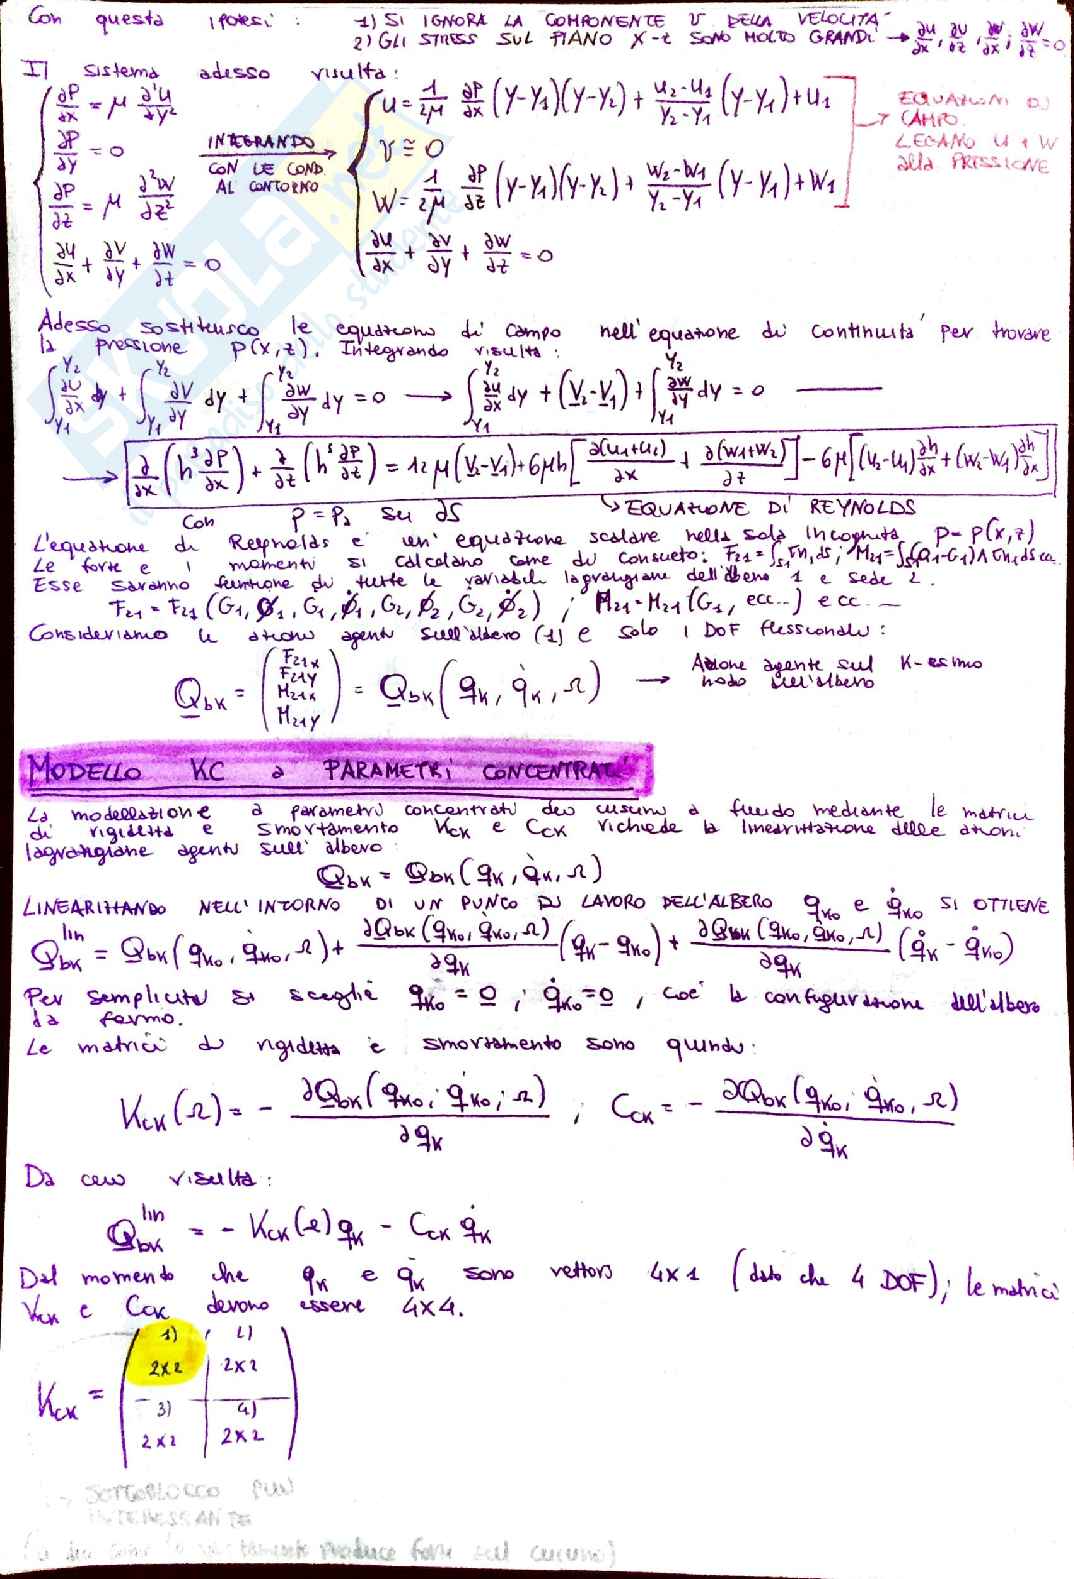 Con questa ipotesi: 1) SI IGNORA LA COMPONENTE V DELLA VELOCITÀ
2) GLI STRESS SUL PIANO X-Z SONO MOLTO GRANDI → ∂u/∂x, ∂u/∂z, ∂w/∂x; ∂w/∂z = 0
Il sistema adesso risulta:
∂P/∂x = μ ∂²u/∂y²
∂P/∂y = 0
∂P/∂z = μ ∂²w/∂z²
∂u/∂x + ∂v/∂y + ∂w/∂z = 0
INTEGRANDO
CON LE COND
AL CONTORNO
u = 1/2μ ∂P/∂x (y-y1)(y-y2) + u2-u1/y2-y1 (y-y1) + u1
v ≅ 0
w = 1/2μ ∂P/∂z (y-y1)(y-y2) + w2-w1/y2-y1 (y-y1) + w1
∂u/∂x + ∂v/∂y + ∂w/∂z = 0
EQUAZIONI DI
CAMPO.
LEGANO U e W
alla PRESSIONE
Adesso sostituisco le equazioni di campo nell'equazione di continuità per trovare
la pressione p(x,z). Integrando risulta:
∫y1^y2 ∂u/∂x dy + ∫y1^y2 ∂v/∂y dy + ∫y1^y2 ∂w/∂y dy = 0 → ∫y1^y2 ∂u/∂x dy + (V2-V1) + ∫y1^y2 ∂w/∂y dy = 0
→ ∂/∂x (h³ ∂P/∂x) + ∂/∂z (h³ ∂P/∂z) = 12μ(V2-V1) + 6μh [∂(u1+u2)/∂x + ∂(w1+w2)/∂z] - 6μ [(u2-u1) ∂h/∂x + (w2-w1) ∂h/∂x]
con p = pa su ∂S → EQUAZIONE DI REYNOLDS
L'equazione di Reynolds è un'equazione scalare nella sola incognita p = p(x,z)
Le forze e i momenti si calcolano come di consueto: F21 = ∫S1 Tn1 ds; M21 = ∫S1 (Q1-G1) ∧ Tn1 ds
Esse saranno funzione di tutte le variabili lagrangiane dell'albero 1 e sede 2.
F21 = F21 (G1, ϕ1, Ġ1, ϕ̇1, G2, ϕ2, Ġ2, ϕ̇2); M21 = M21 (G1, ecc...) ecc.
Consideriamo le azioni agenti sull'albero (1) e solo i DOF flessionali:
Qbk = (F21x F21y M21x M21y) = Qbk (qk, q̇k, Ω) → Azione agente sul k-esimo
nodo sull'albero
MODELLO KC a PARAMETRI CONCENTRATI
La modellazione a parametri concentrati dei cuscini a fluido mediante le matrici
di rigidezza e smorzamento Kck e Cck richiede la linearizzazione delle azioni
lagrangiane agenti sull'albero:
Qbk = Qbk (qk, q̇k, Ω)
LINEARIZZANDO NELL'INTORNO DI UN PUNTO DI LAVORO DELL'ALBERO qko e q̇ko SI OTTIENE
Qbk^lin = Qbk (qko, q̇ko, Ω) + ∂Qbk (qko, q̇ko, Ω)/∂qk (qk - qko) + ∂Qbk (qko, q̇ko, Ω)/∂qk (q̇k - q̇ko)
Per semplicità si sceglie qko = 0; q̇ko = 0, cioè la configurazione dell'albero
da fermo.
Le matrici di rigidezza e smorzamento sono quindi:
Kck (Ω) = - ∂Qbk (qko; q̇ko; Ω)/∂qk ; Cck = - ∂Qbk (qko; q̇ko, Ω)/∂q̇k
Da cui risulta:
Qbk^lin = - Kck (Ω) qk - Cck q̇k
Dal momento che qk e q̇k sono vettori 4x1 (dato che 4 DOF); le matrici
Kck e Cck devono essere 4x4.
1) 2)
2x2 2x2
Kck =
3) 4)
2x2 2x2
SOTTOBLOCCO PIÙ
INTERESSANTE
produce forze sul cuscino)